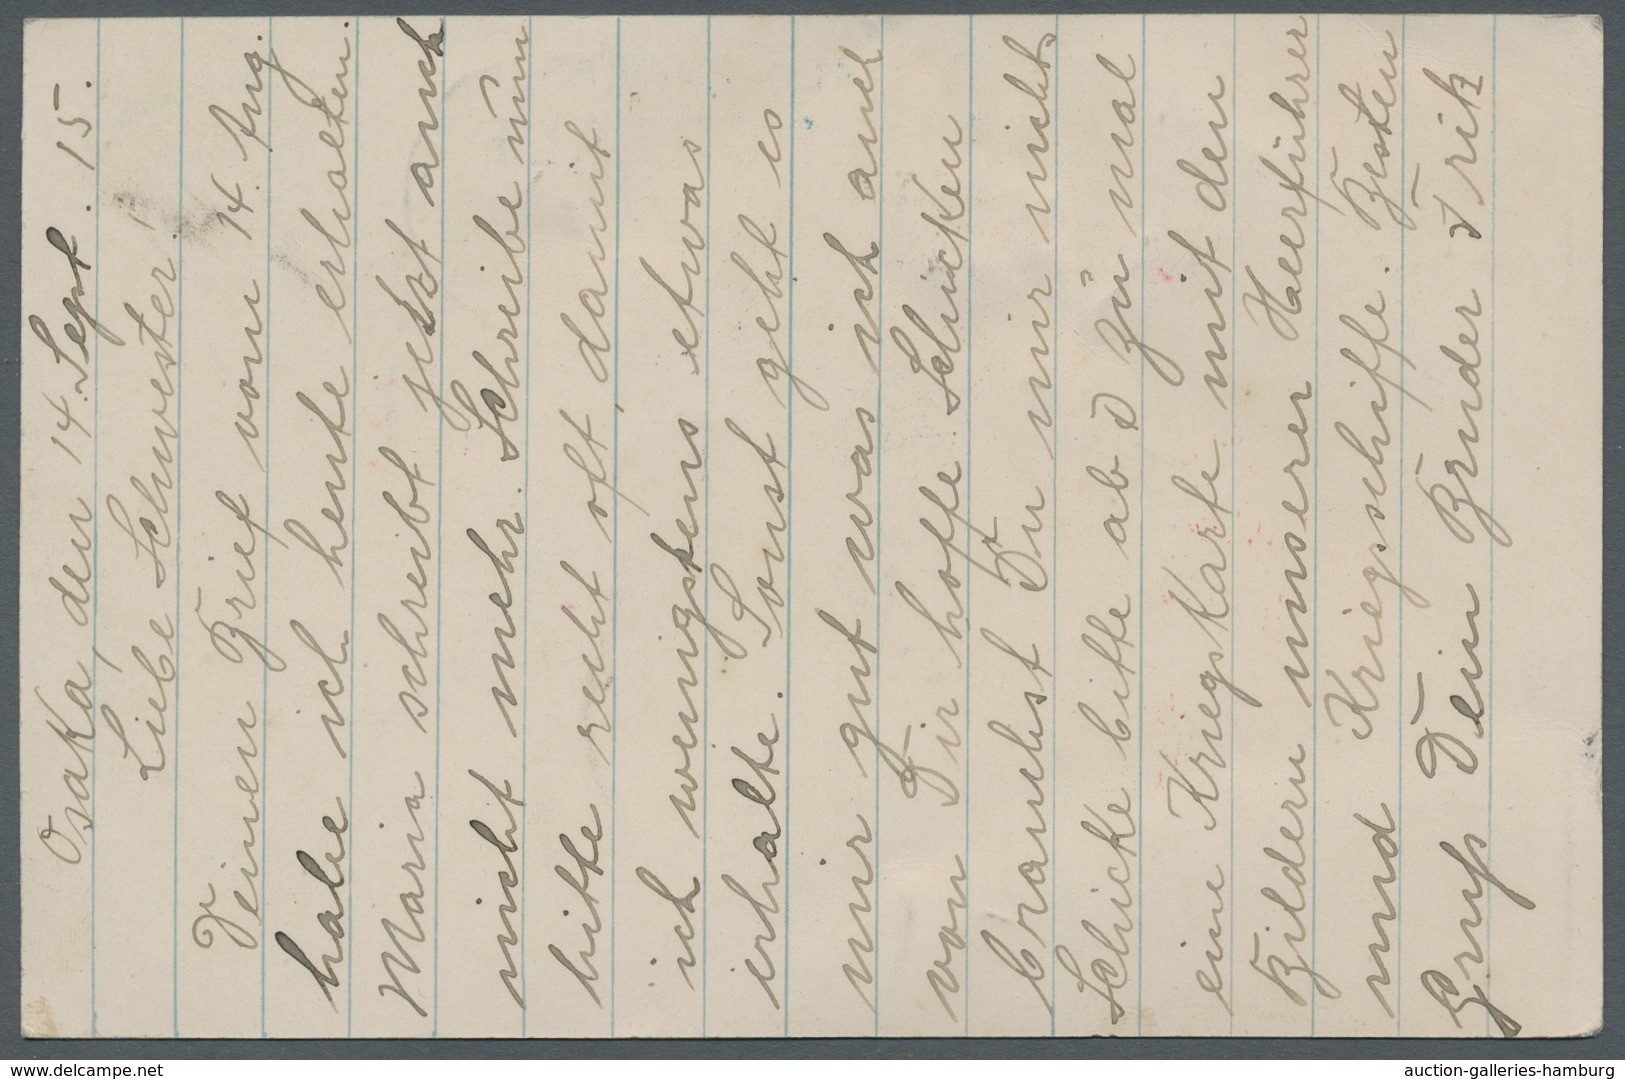 Osaka, den 14. Sept. 15.
Liebe Schwester!
Deinen Brief vom 14. Aug.
habe ich heute erhalten.
Maria schreibt jetzt auch
nicht mehr. Schreibe nun
bitte recht oft, damit
ich wenigstens etwas
erhalte. Sonst geht es
mir gut was ich auch
von Dir hoffe. Schicken
brauchst Du mir nicht
Schicke bitte ab & zu mal
eine Kriegskarte mit den
Bildern unserer Heerführer
und Kriegsschiffe. Besten
Gruß Dein Bruder
www.delcampe.net
auction-galleries-hamburg